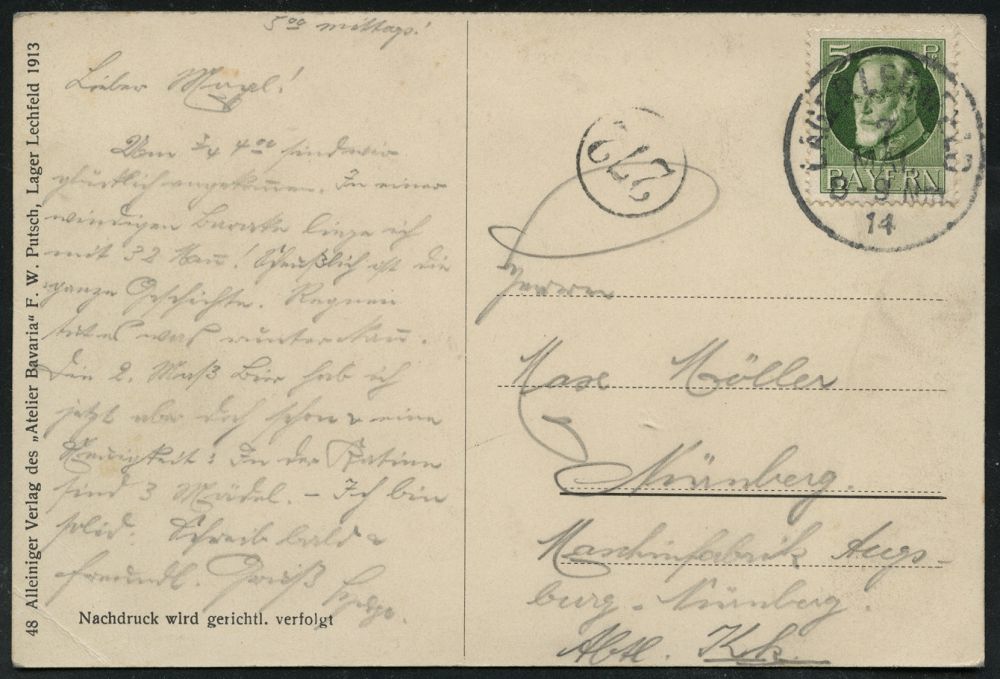 48 Alleiniger Verlag des „Atelier Bavaria“ F. W. Putsch, Lager Lechfeld 1913
5⁰⁰ mittags!
Lieber Maxl!
Um ¾ 4⁰⁰ sind wir
glücklich angekommen. In einer
windigen Baracke liege ich
mit 32 Mann! Scheußlich ist die
ganze Geschichte. Regnen
tut es was runterkann.
Die 2. Maß Bier hab ich
jetzt aber doch schon & eine
Neuigkeit: In der Kantine
sind 3 Mädel. – Ich bin
solid. Schreib bald &
freundl. Gruß
Nachdruck wird gerichtl. verfolgt
5 Pf
BAYERN
LAGER LECHFELD
7
MAI
8-9 NM
14
272
Herrn
Max Möller
Nürnberg.
Maschinfabrik Augs-
burg-Nürnberg.
Abtl. Kk.